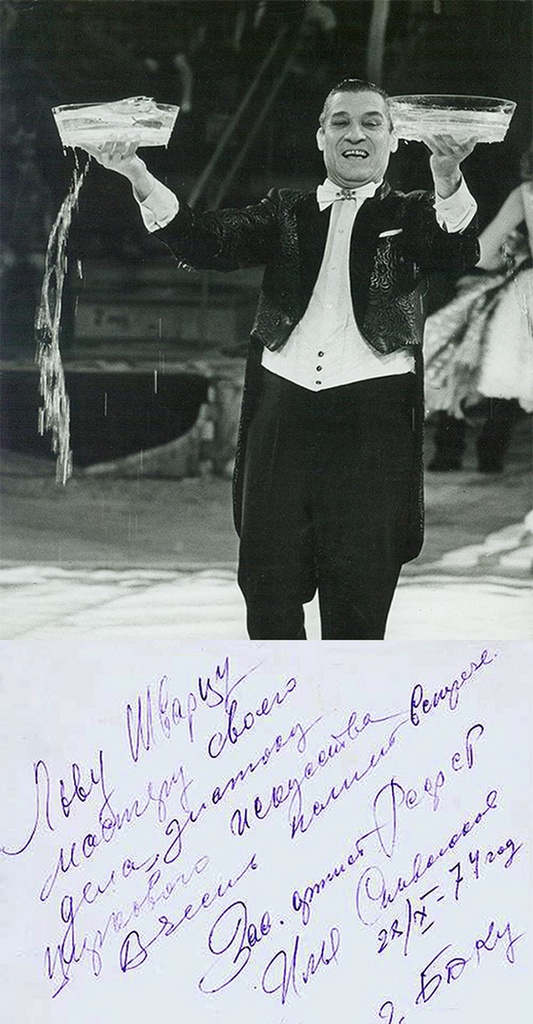 Льву Шварцу
мастеру своего
дела, знатоку
циркового искусства
В честь нашей встречи.
Зас. артист РСФСР
Илья Символоков
28/X-74 год
г. Баку